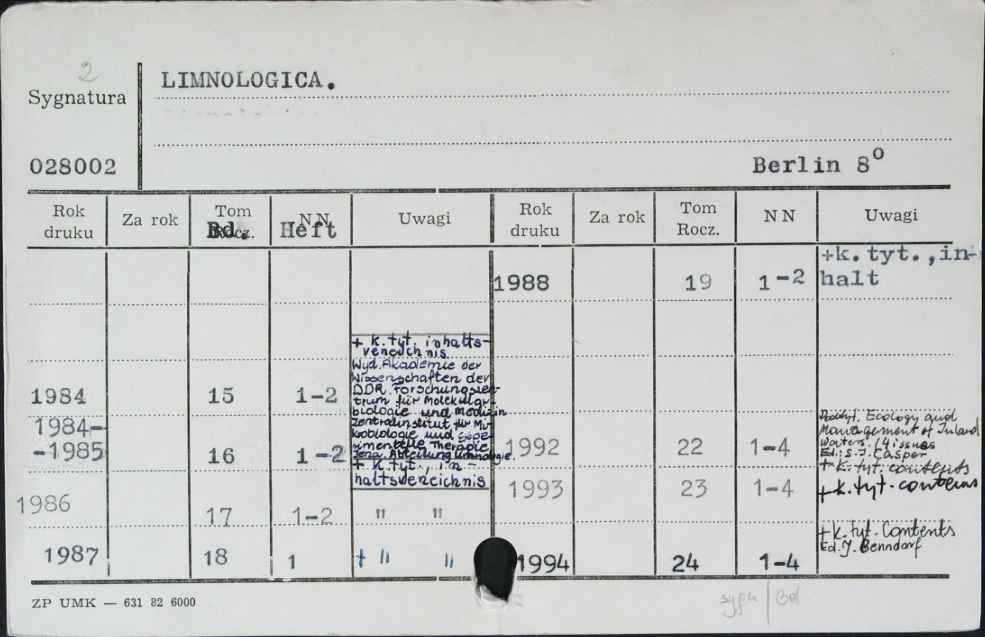 2
LIMNOLOGICA.
Sygnatura
028002
Berlin 8º
Rok druku
Za rok
Tom Rocz.
Bd.
NN
Heft
Uwagi
Rok druku
Za rok
Tom Rocz.
NN
Uwagi
1988 19 1-2 +k.tyt.,in-
halt
+ k.tyt, inhalts-
Wyd. Akademie der
Wissenschaften der
DDR. Forschungszen-
trum für Molekular
biologie und Medizin
Zentralinstitut für Mi-
krobiologie und expe-
rimentelle Therapie
Jena, Abteilung Limnologie.
+ k.tyt., in-
haltsverzeichnis
1984 15 1-2
1984-
-1985 16 1-2
1986 17 1-2 " "
1987 18 1 + " "
Ecology and
Management of Inland
Waters. (4 issues
Ed.: S.J. Casper
1992 22 1-4 +k.tyt. contents
1993 23 1-4 +k.tyt. contens
+k.tyt. Contents
Ed. J. Benndorf
1994 24 1-4
ZP UMK — 631 82 6000
sygn | Bd